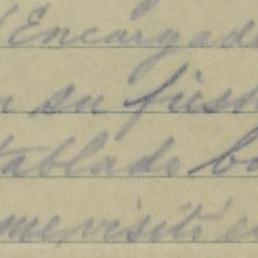 Encargad
n su fiest
tablado b
me visité e